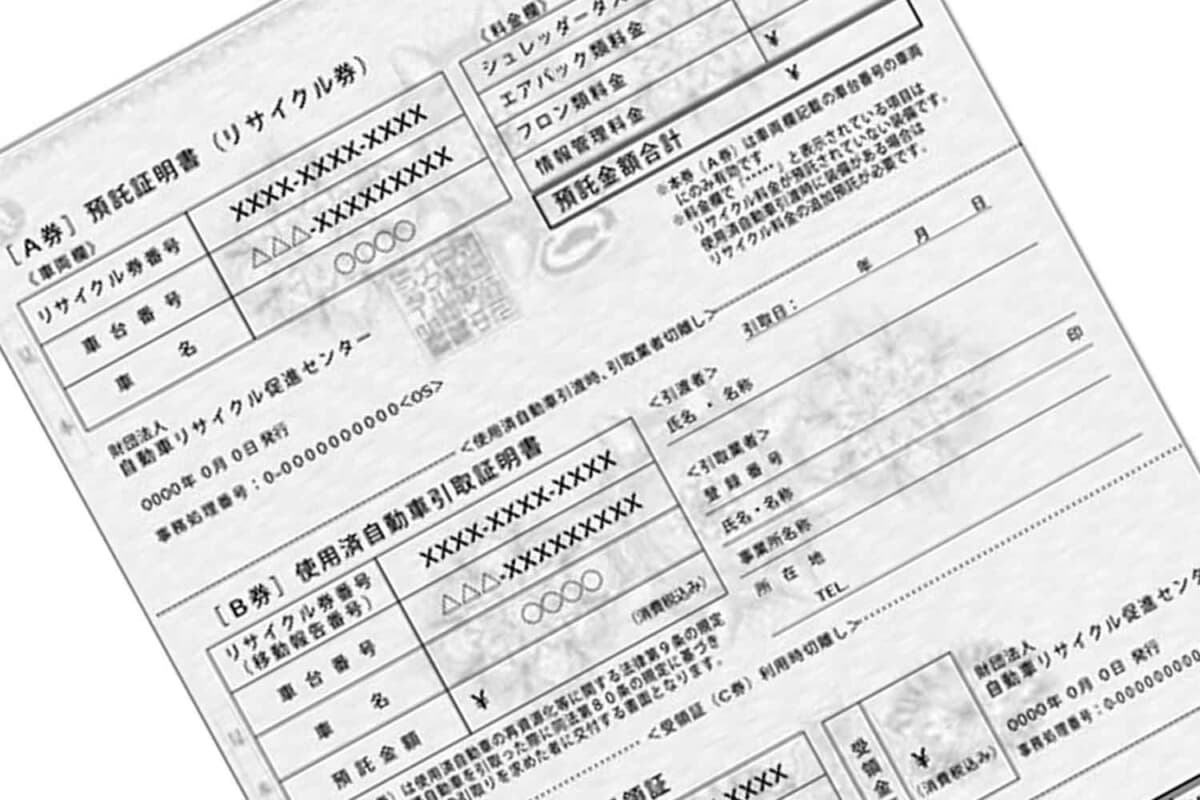 ［A券］ 預託証明書（リサイクル券）
《車両欄》
リサイクル券番号 XXXX-XXXX-XXXX
車台番号 △△△-XXXXXXXXX
車名 ○○○○
財団法人
自動車リサイクル促進センター
0000年 0月 0日 発行
事務処理番号：0-0000000000<OS>
《料金欄》
シュレッダーダス
エアバッグ類料金 ¥
フロン類料金
情報管理料金
預託金額合計 ¥
※本券（A券）は車両欄記載の車台番号の車両
にのみ有効です
※料金欄で「・・・・・」と表示されている項目は
リサイクル料金が預託されていない装備です。
使用済自動車引渡時に装備がある場合は
リサイクル料金の追加預託が必要です。
＜使用済自動車引渡時、引取業者切離し＞
［B券］ 使用済自動車引取証明書
リサイクル券番号 XXXX-XXXX-XXXX
（移動報告番号）
車台番号 △△△-XXXXXXXXX
車名 ○○○○
預託金額 ¥ (消費税込み)
引取日： 年 月 日
＜引渡者＞
氏名・名称 印
＜引取業者＞
登録番号
氏名・名称
事業所名称
所在地
TEL
券）は使用済自動車の再資源化等に関する法律第9条の規定
済自動車を引取った際に同法第80条の規定に基づき
引取りを求めた者に交付する書面となります。
＜受領証（C券）利用時切離し＞
領証
XXXX
受領金 ¥ (消費税込み)
財団法人
自動車リサイクル促進センタ
0000年 0月 0日 発行
事務処理番号：0-000000000